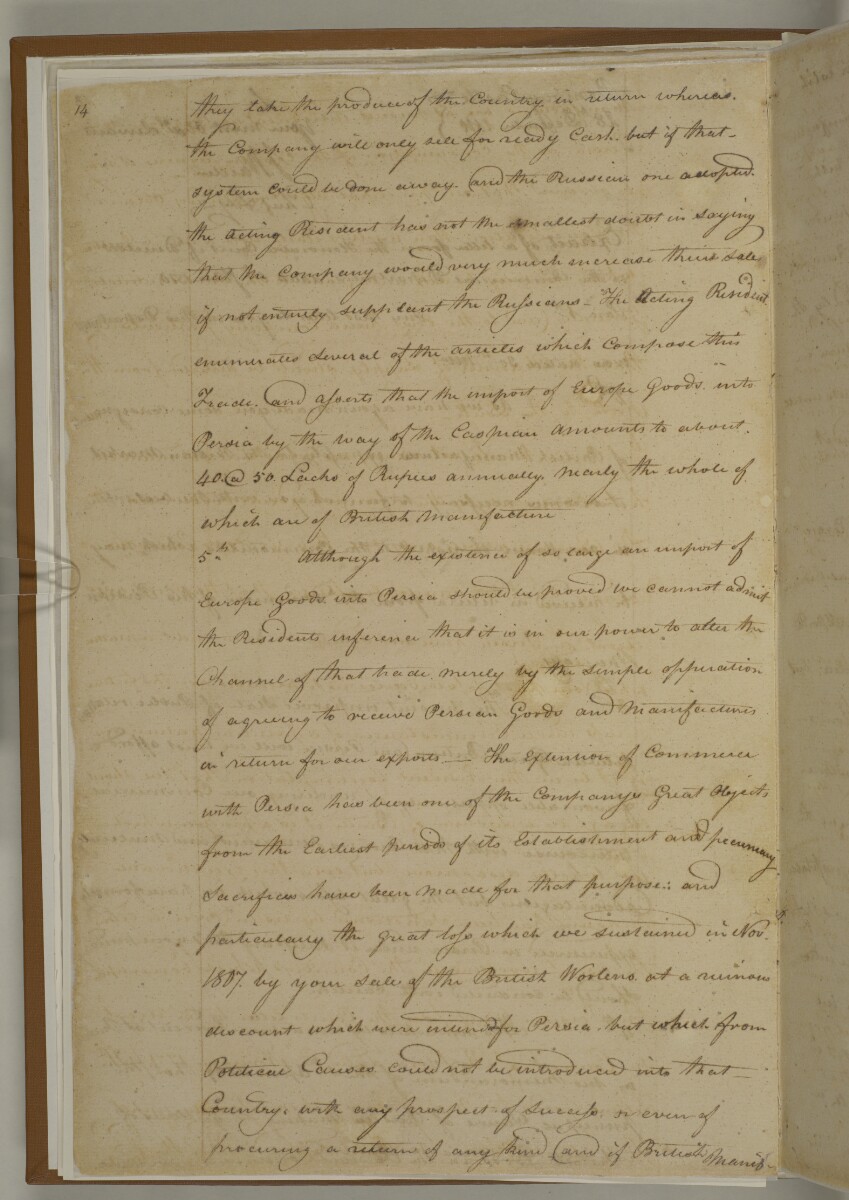 14
they take the produce of the Country in return whereas
the Company will only sell for ready Cash. but if that
system could be done away. and the Russian one adopted.
the acting Resident has not the smallest doubt in saying
that the Company would very much increase their sales
if not entirely supplant the Russians – The Acting Resident
enumerates several of the articles which compose this
Trade. and asserts that the import of Europe Goods into
Persia by the way of the Caspian amounts to about.
40. @ 50. Lacks of Rupees annually. nearly the whole of
which are of British Manufacture
5th Although the existence of so large an import of
Europe Goods into Persia should be proved we cannot admit
the Residents inference that it is in our power to alter the
Channel of that trade, merely by the simple opperation
of agreeing to receive Persian Goods and Manufactures
in return for our exports — The Extention of Commerce
with Persia has been one of the Companys Great Objects
from the Earliest periods of its Establishment and pecuniary
Sacrifices have been made for that purpose: and
particularly the great loss which we sustained in Nov.
1807. by your sale of the British Woolens at a ruinous
discount which were intended for Persia. but which from
Political Causes could not be introduced into that
Country. with any prospect of success. or even of
procuring a return of any kind (and if British Manif-